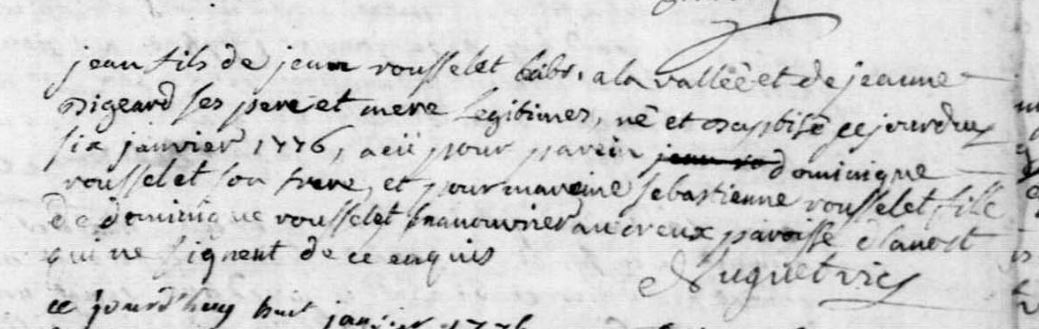 jean fils de jean rousselet labr, a la vallée et de jeanne
pigeard ses pere et mere legitimes, né et baptisé ce jourduy
six janvier 1776, a eü pour parein dominique
rousselet son frere, et pour mareine sebastienne rousselet fille
de dominique rousselet manouvrier au creux paroisse d'anost
qui ne signent de ce enquis
Duguet vic
ce jourd'huy huit janvier 1776